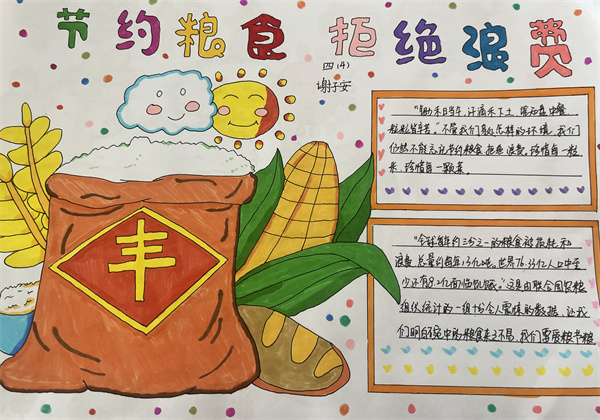 节约粮食 拒绝浪费
四(4)
谢子安
丰
"锄禾日当午,汗滴禾下土,谁知盘中餐
粒粒皆辛苦。"不管我们身处怎样的环境,我们
仍然不能忘记节约粮食,拒绝浪费,珍惜每一粒
米,珍惜每一颗菜。
"全球每年约三分之一的粮食被损耗和
浪费,总量约每年13亿吨,世界76.33亿人口中至
少还有8.2亿面临饥饿。"这是由联合国农粮
组织统计的一组十分令人震惊的数据,让我
们明白家中的粮食来之不易,我们需要爱粮节粮